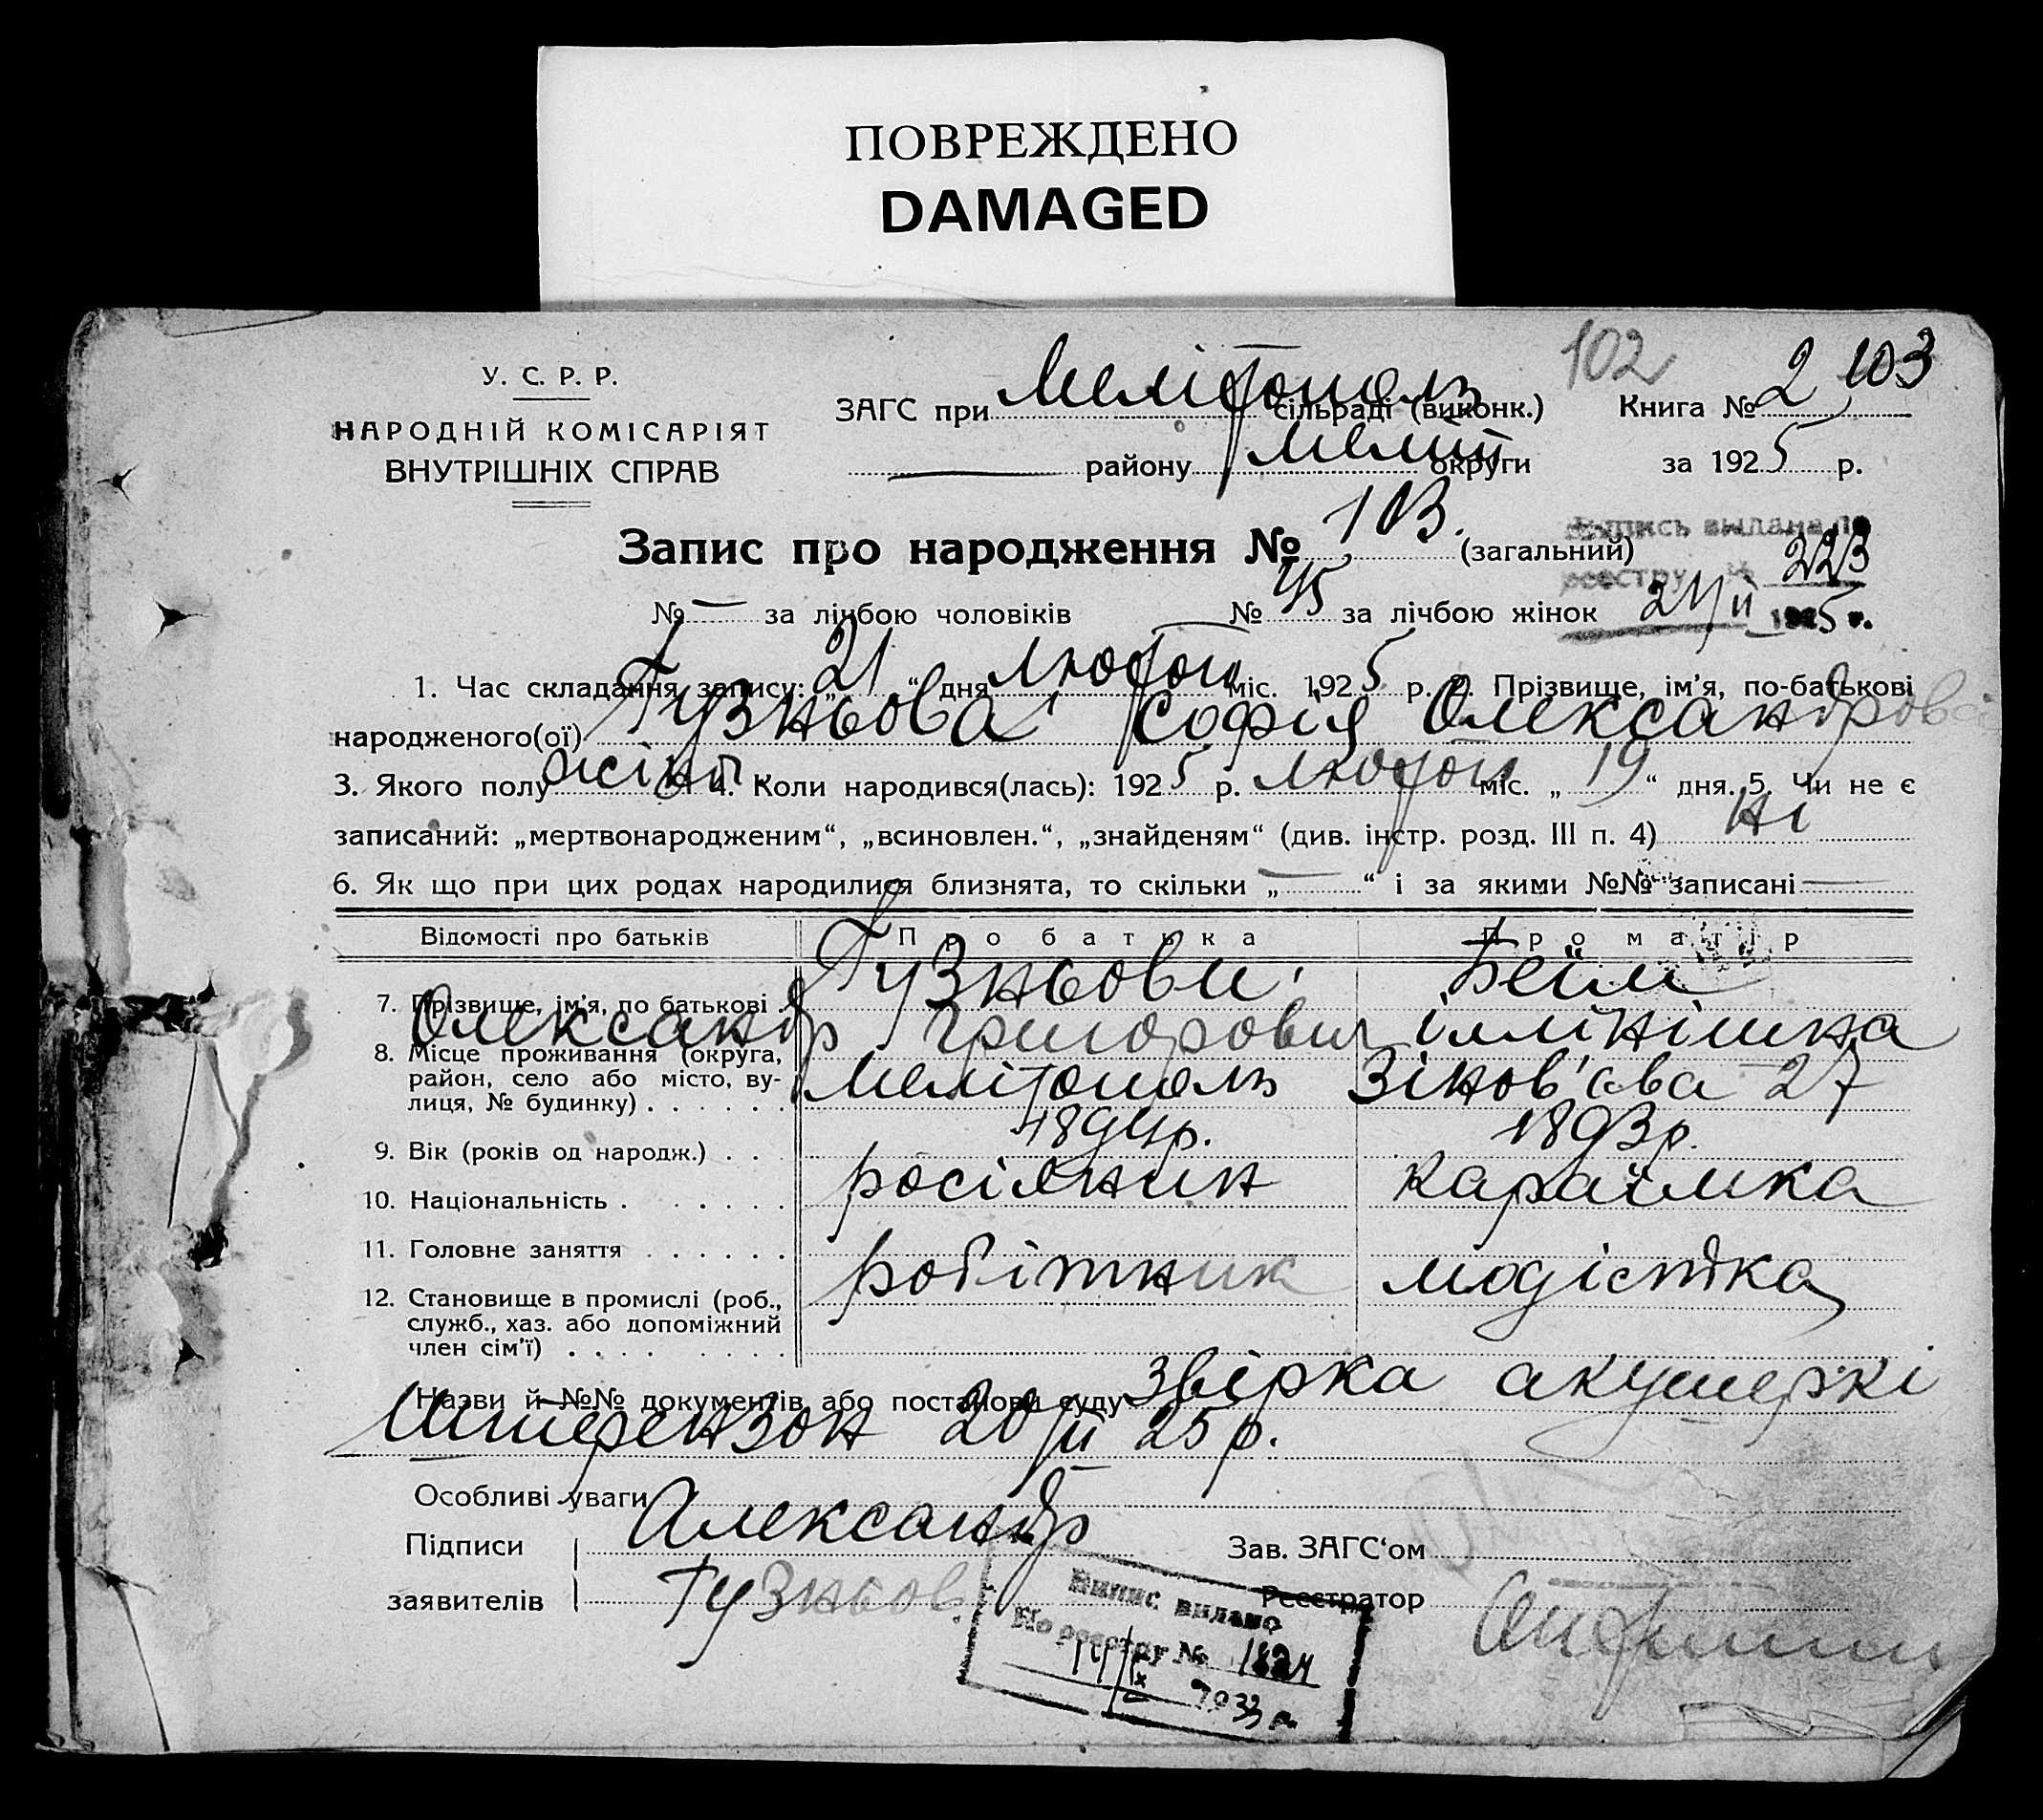 ПОВРЕЖДЕНО
DAMAGED
102 103
У. С. Р. Р.
НАРОДНІЙ КОМІСАРІЯТ
ВНУТРІШНІХ СПРАВ
ЗАГС при Мелітополь сільраді (виконк.) Книга № 2
— району Меліт округи за 1925 р.
Запис про народження № 103. (загальний)
№ — за лічбою чоловіків № 45 за лічбою жінок
выпись выдана по
реестру № 223
24/II 1925 г.
1. Час складання запису: „21“ дня лютого міс. 1925 р. 2. Прізвище, ім'я, по-батькові
народженого(ої) Гузньова Софія Олександровa
3. Якого полу жіноч. 4. Коли народився(лась): 1925 р. лютого міс. „19“ дня. 5. Чи не є
записаний: „мертвонародженим“, „всиновлен.“, „знайденям“ (див. інстр. розд. III п. 4) ні
6. Як що при цих родах народилися близнята, то скільки „—“ і за якими №№ записані —
Відомості про батьків Про батька Про матір
7. Прізвище, ім'я, по батькові . Гузньови Бейм
Олександр Григорович
8. Місце проживання (округа, район, село або місто, вулиця, № будинку) . . . . . . Мелітополь Зінов'єва 27
9. Вік (років од народж.) . . . 1894р. 1893р.
10. Національність . . . . . . росіянин караїмка
11. Головне заняття . . . . . . робітник модістка
12. Становище в промислі (роб., служб., хаз. або допоміжний член сім'ї) . . . . . . . .
Назви й №№ документів або постанови суду звірка акушеркі
Штерензон 20/II 25 р.
Особливі уваги
Підписи Александр Зав. ЗАГС‘ом
заявителів Гузньов Реєстратор
Випис видано
По реєстру № 1824
14/IX 1933 р.